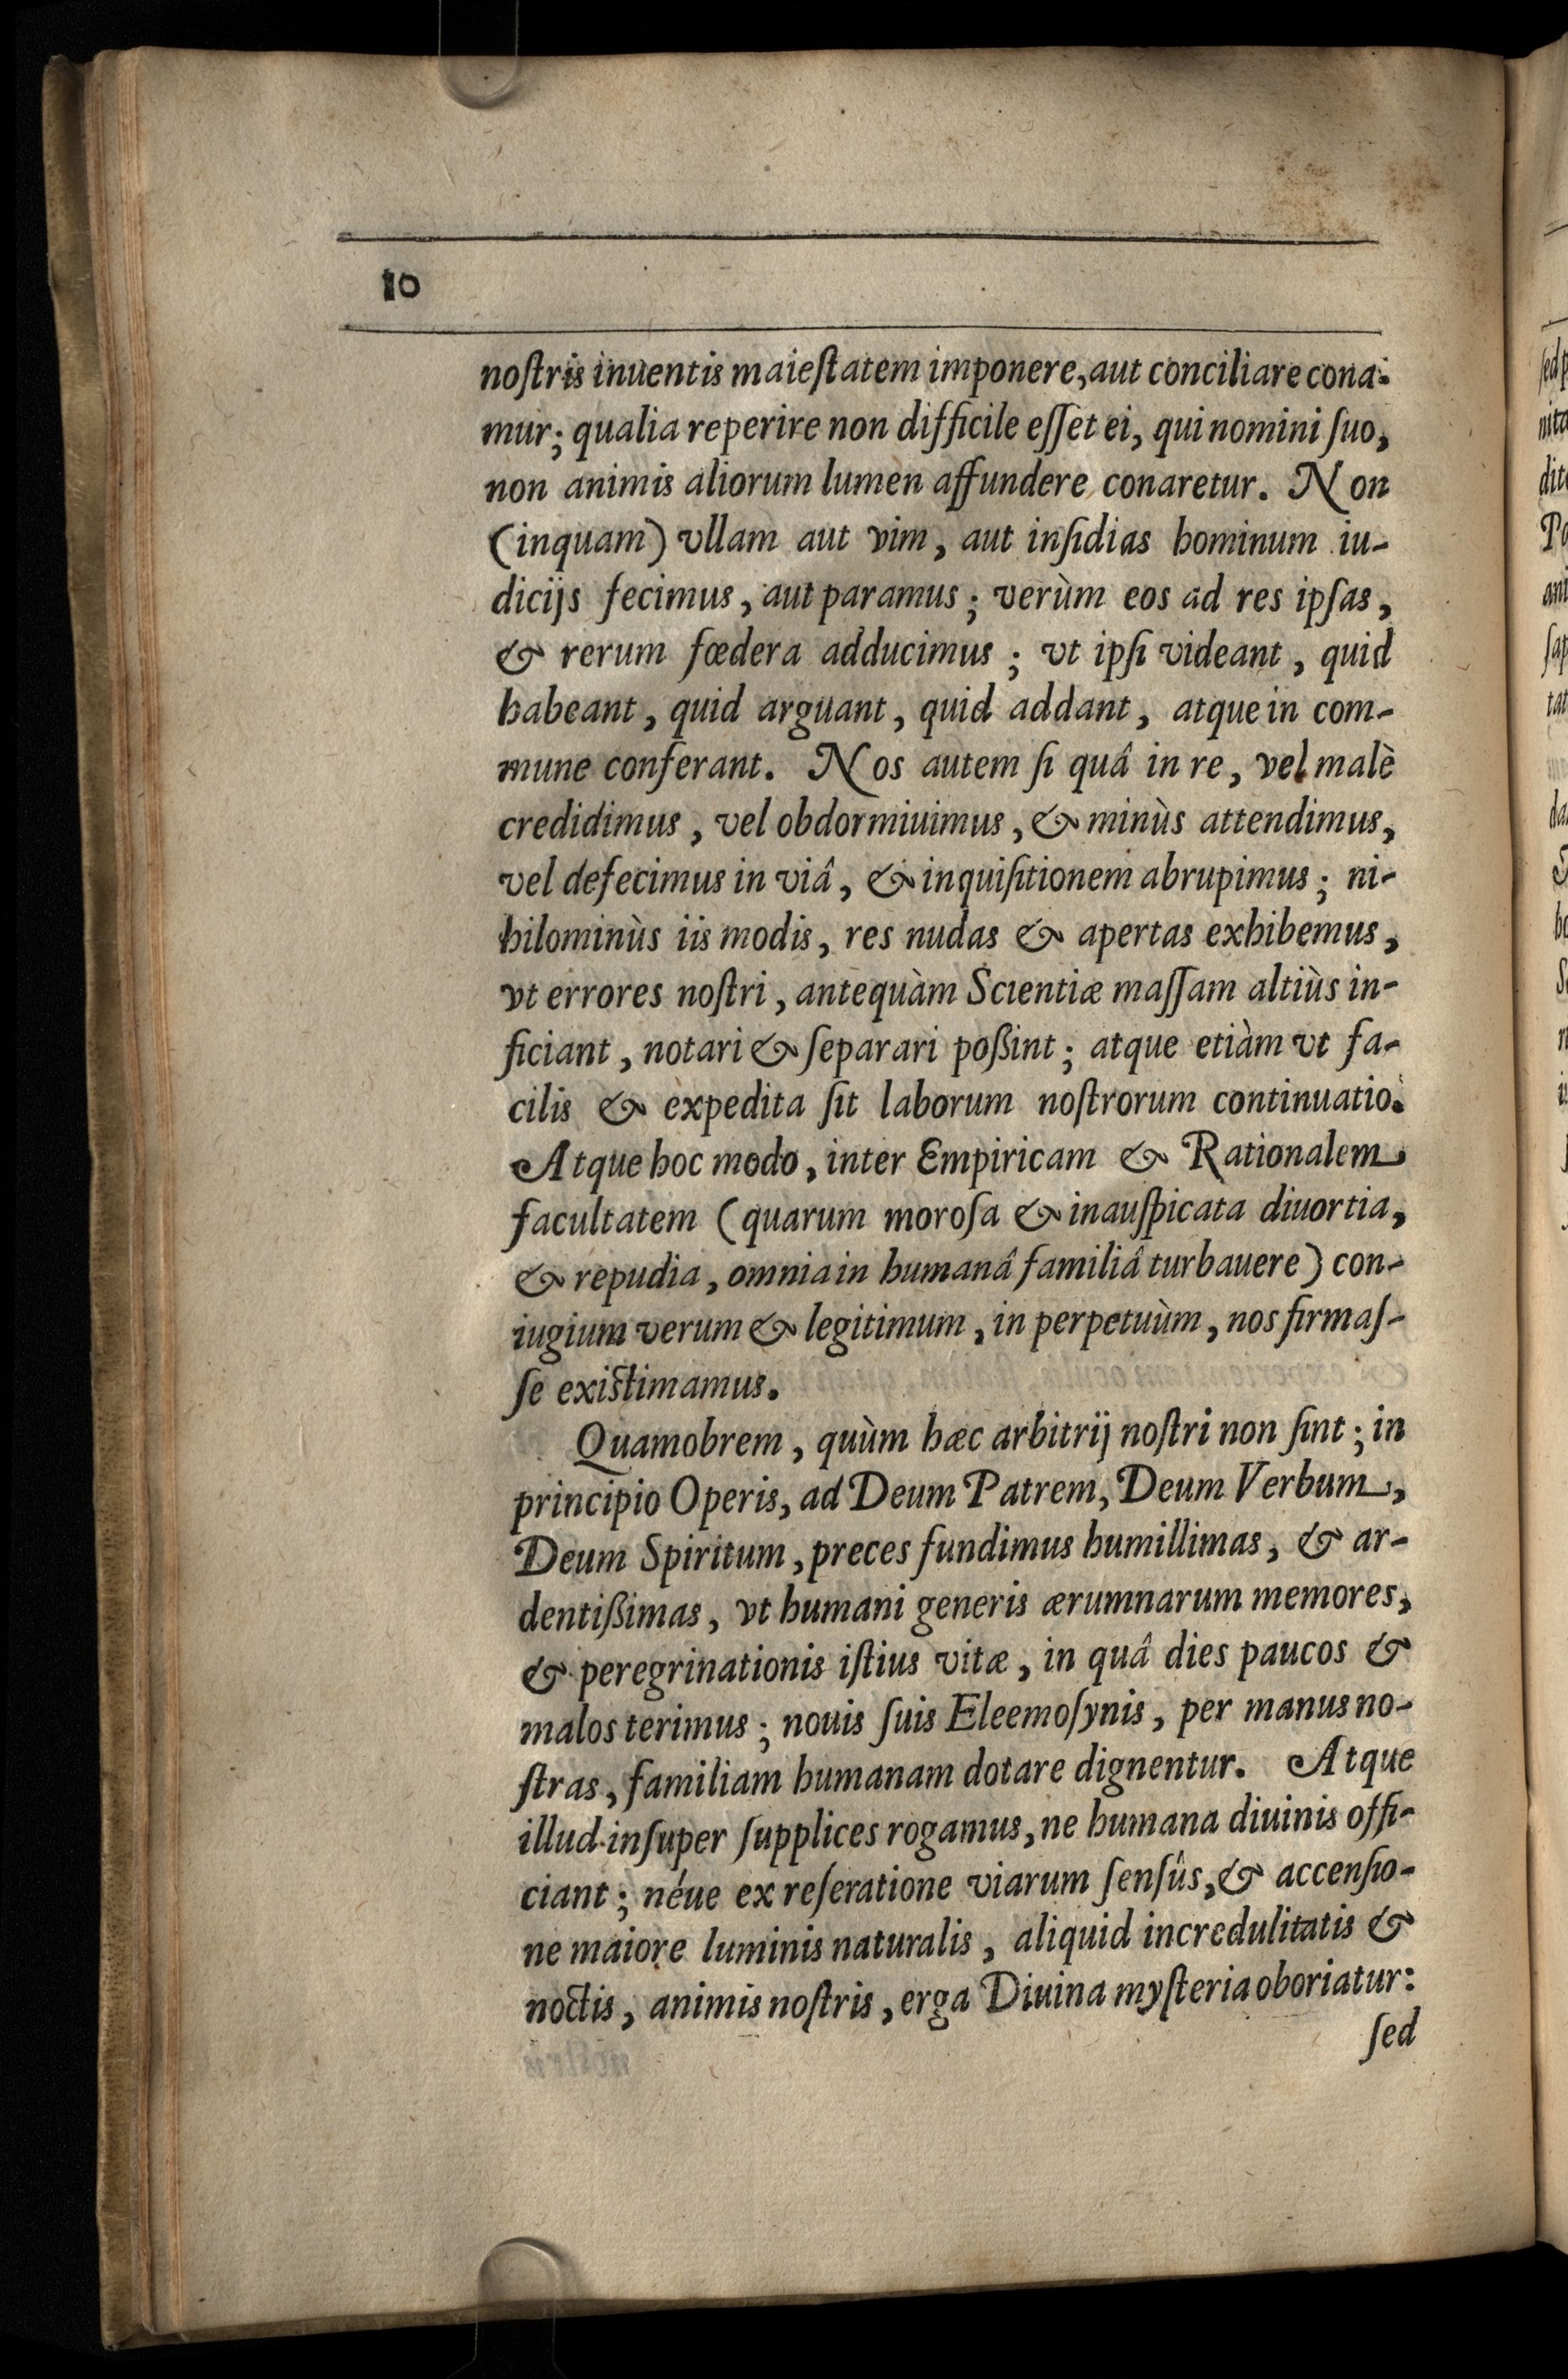 10
noſtris inuentis maieſtatem imponere, aut conciliare cona-
mur; qualia reperire non difficile eſſet ei, qui nomini ſuo,
non animis aliorum lumen affundere conaretur. Non
(inquam) vllam aut vim, aut inſidias hominum iu-
dicijs fecimus, aut paramus; verùm eos ad res ipſas,
& rerum fœdera adducimus; vt ipſi videant, quid
habeant, quid arguant, quid addant, atque in com-
mune conferant. Nos autem ſi quâ in re, vel malè
credidimus, vel obdormiuimus, & minùs attendimus,
vel defecimus in viâ, & inquiſitionem abrupimus; ni-
hilominùs iis modis, res nudas & apertas exhibemus,
vt errores noſtri, antequàm Scientiæ maſſam altiùs in-
ficiant, notari & ſeparari poßint; atque etiàm vt fa-
cilis & expedita ſit laborum noſtrorum continuatio.
Atque hoc modo, inter Empiricam & Rationalem
facultatem (quarum moroſa & inauſpicata diuortia,
& repudia, omnia in humanâ familiâ turbauere) con-
iugium verum & legitimum, in perpetuùm, nos firmaſ-
ſe existimamus.
Quamobrem, quùm hæc arbitrij noſtri non ſint; in
principio Operis, ad Deum Patrem, Deum Verbum,
Deum Spiritum, preces fundimus humillimas, & ar-
dentißimas, vt humani generis ærumnarum memores,
& peregrinationis iſtius vitæ, in quâ dies paucos &
malos terimus; nouis ſuis Eleemoſynis, per manus no-
ſtras, familiam humanam dotare dignentur. Atque
illud inſuper ſupplices rogamus, ne humana diuinis offi-
ciant; néue ex reſeratione viarum ſenſûs, & accenſio-
ne maiore luminis naturalis, aliquid incredulitatis &
noctis, animis noſtris, erga Diuina myſteria oboriatur:
ſed